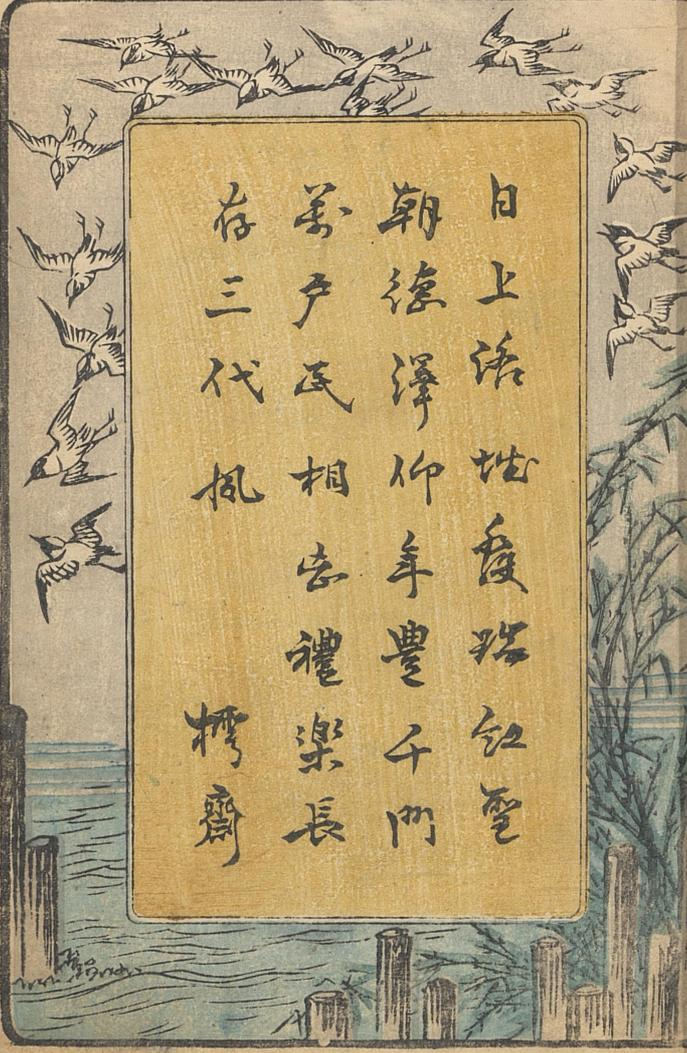 日上洛城發瑞紅聖
朝德澤仰年豊千門
萬戸民相禮楽長
存三代風
樗齋